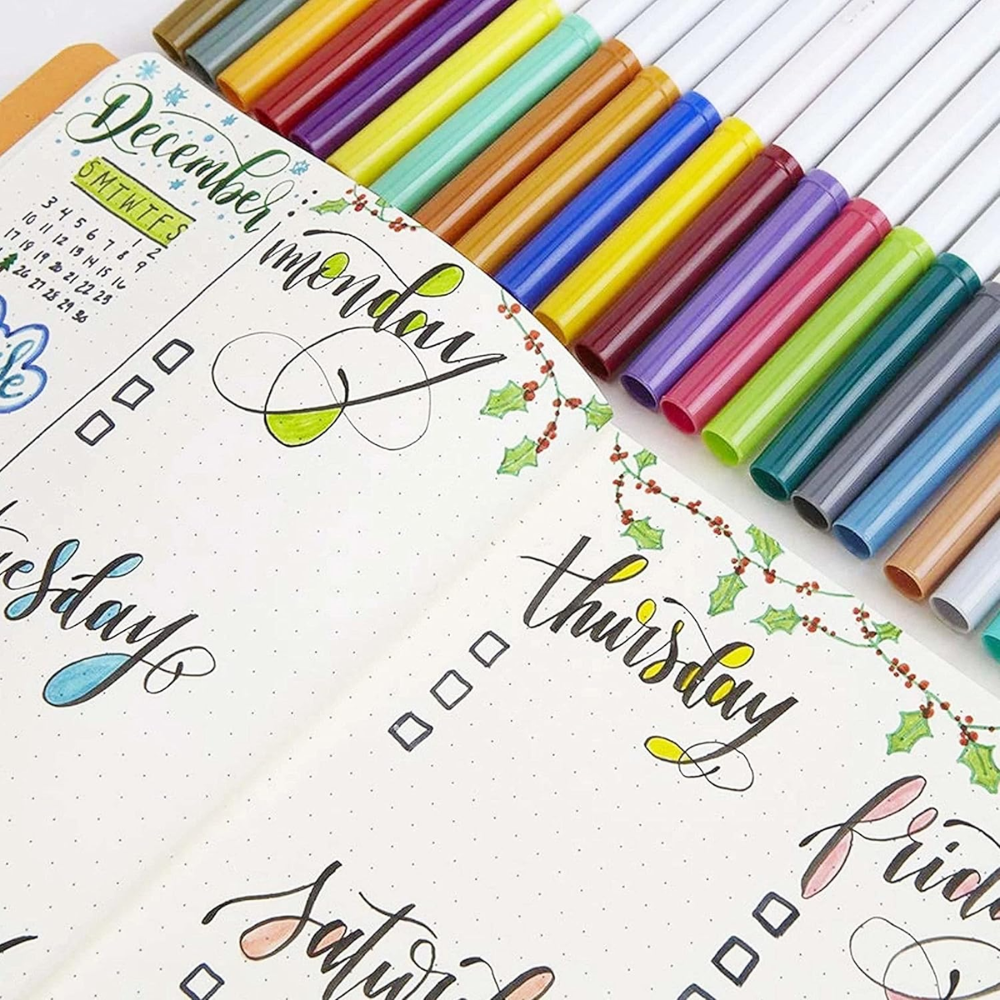 December
SMTWTFS
1 2
3 4 5 6 7 8 9
10 11 12 13 14 15 16
17 19 20 21 22 23
26 27 28 29 30
monday
tuesday
thursday
friday
saturday